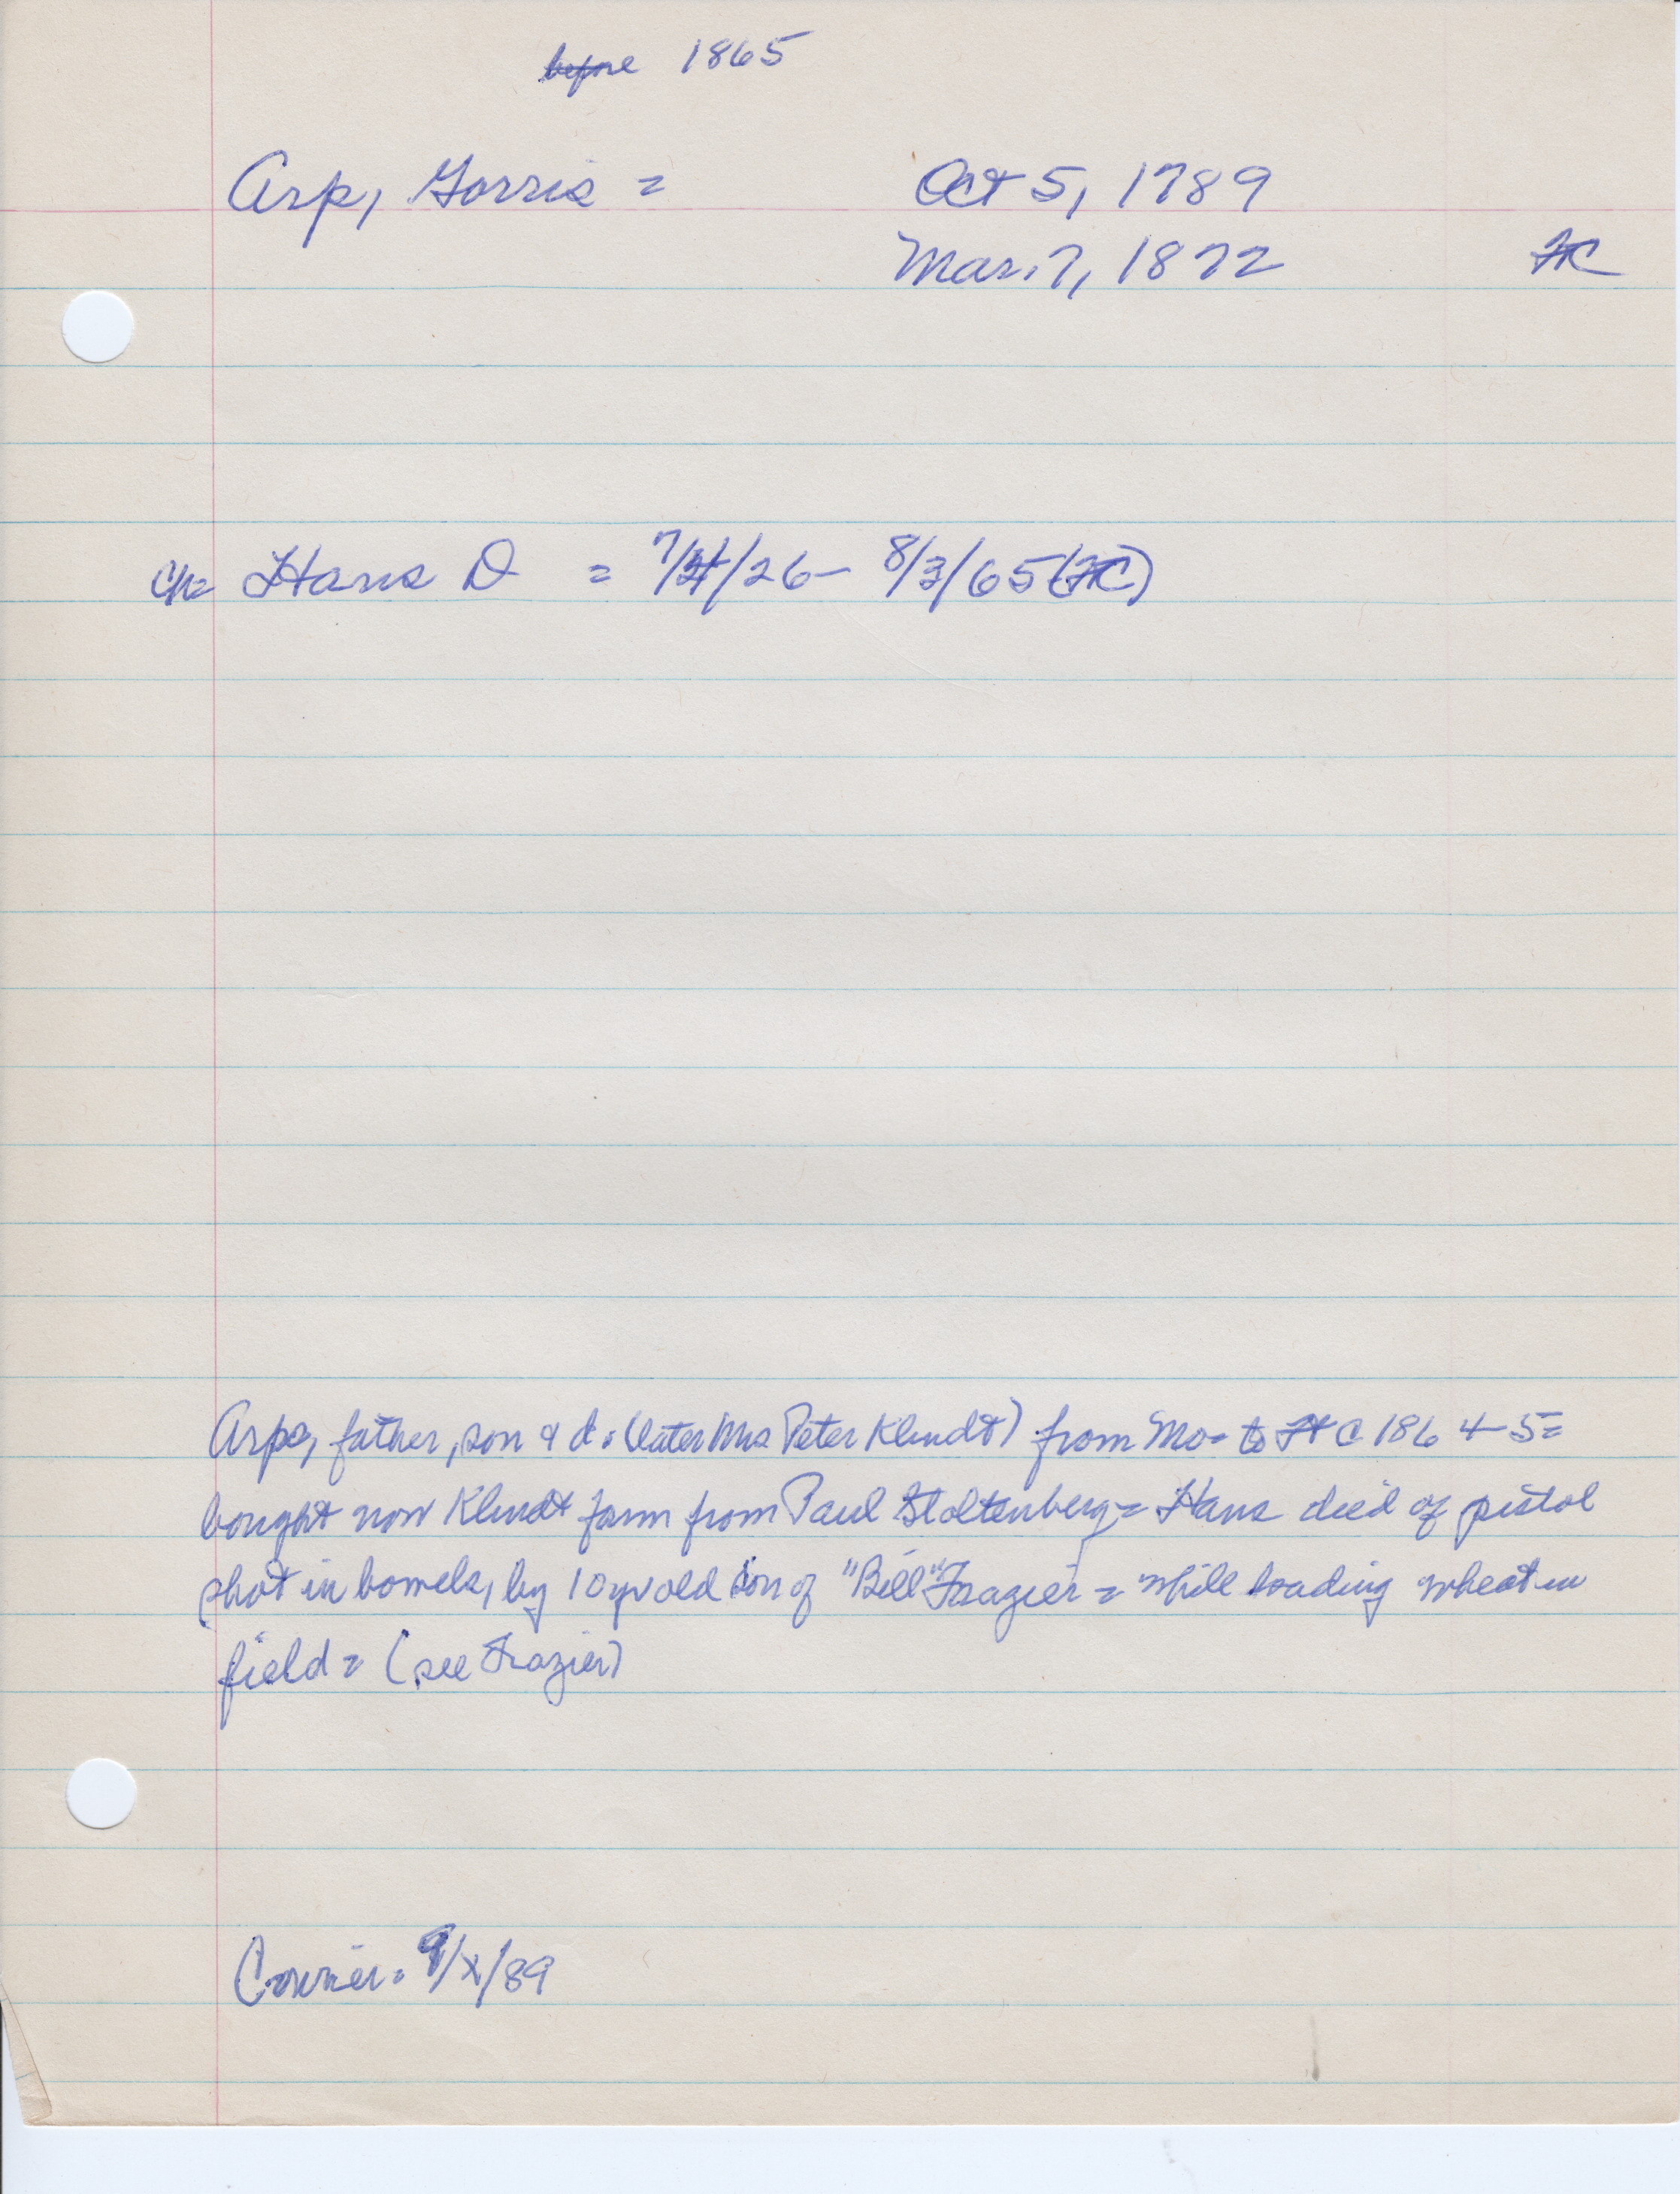 before 1865
Arp, Gorris = Oct 5, 1789
Mar. 7, 1872 HC
C/= Hans D = 7/24/26 - 8/3/65 (HC)
Arps, father, son & d. (later Mrs Peter Klindt) from Mo = to HC 1864-5 =
bought now Klindt farm from Paul Stoltenberg = Hans died of pistol
shot in bowels, by 10 yr old son of "Bill" Frazier = while loading wheat in
field = (see Frazier)
Courier = 9/x/89